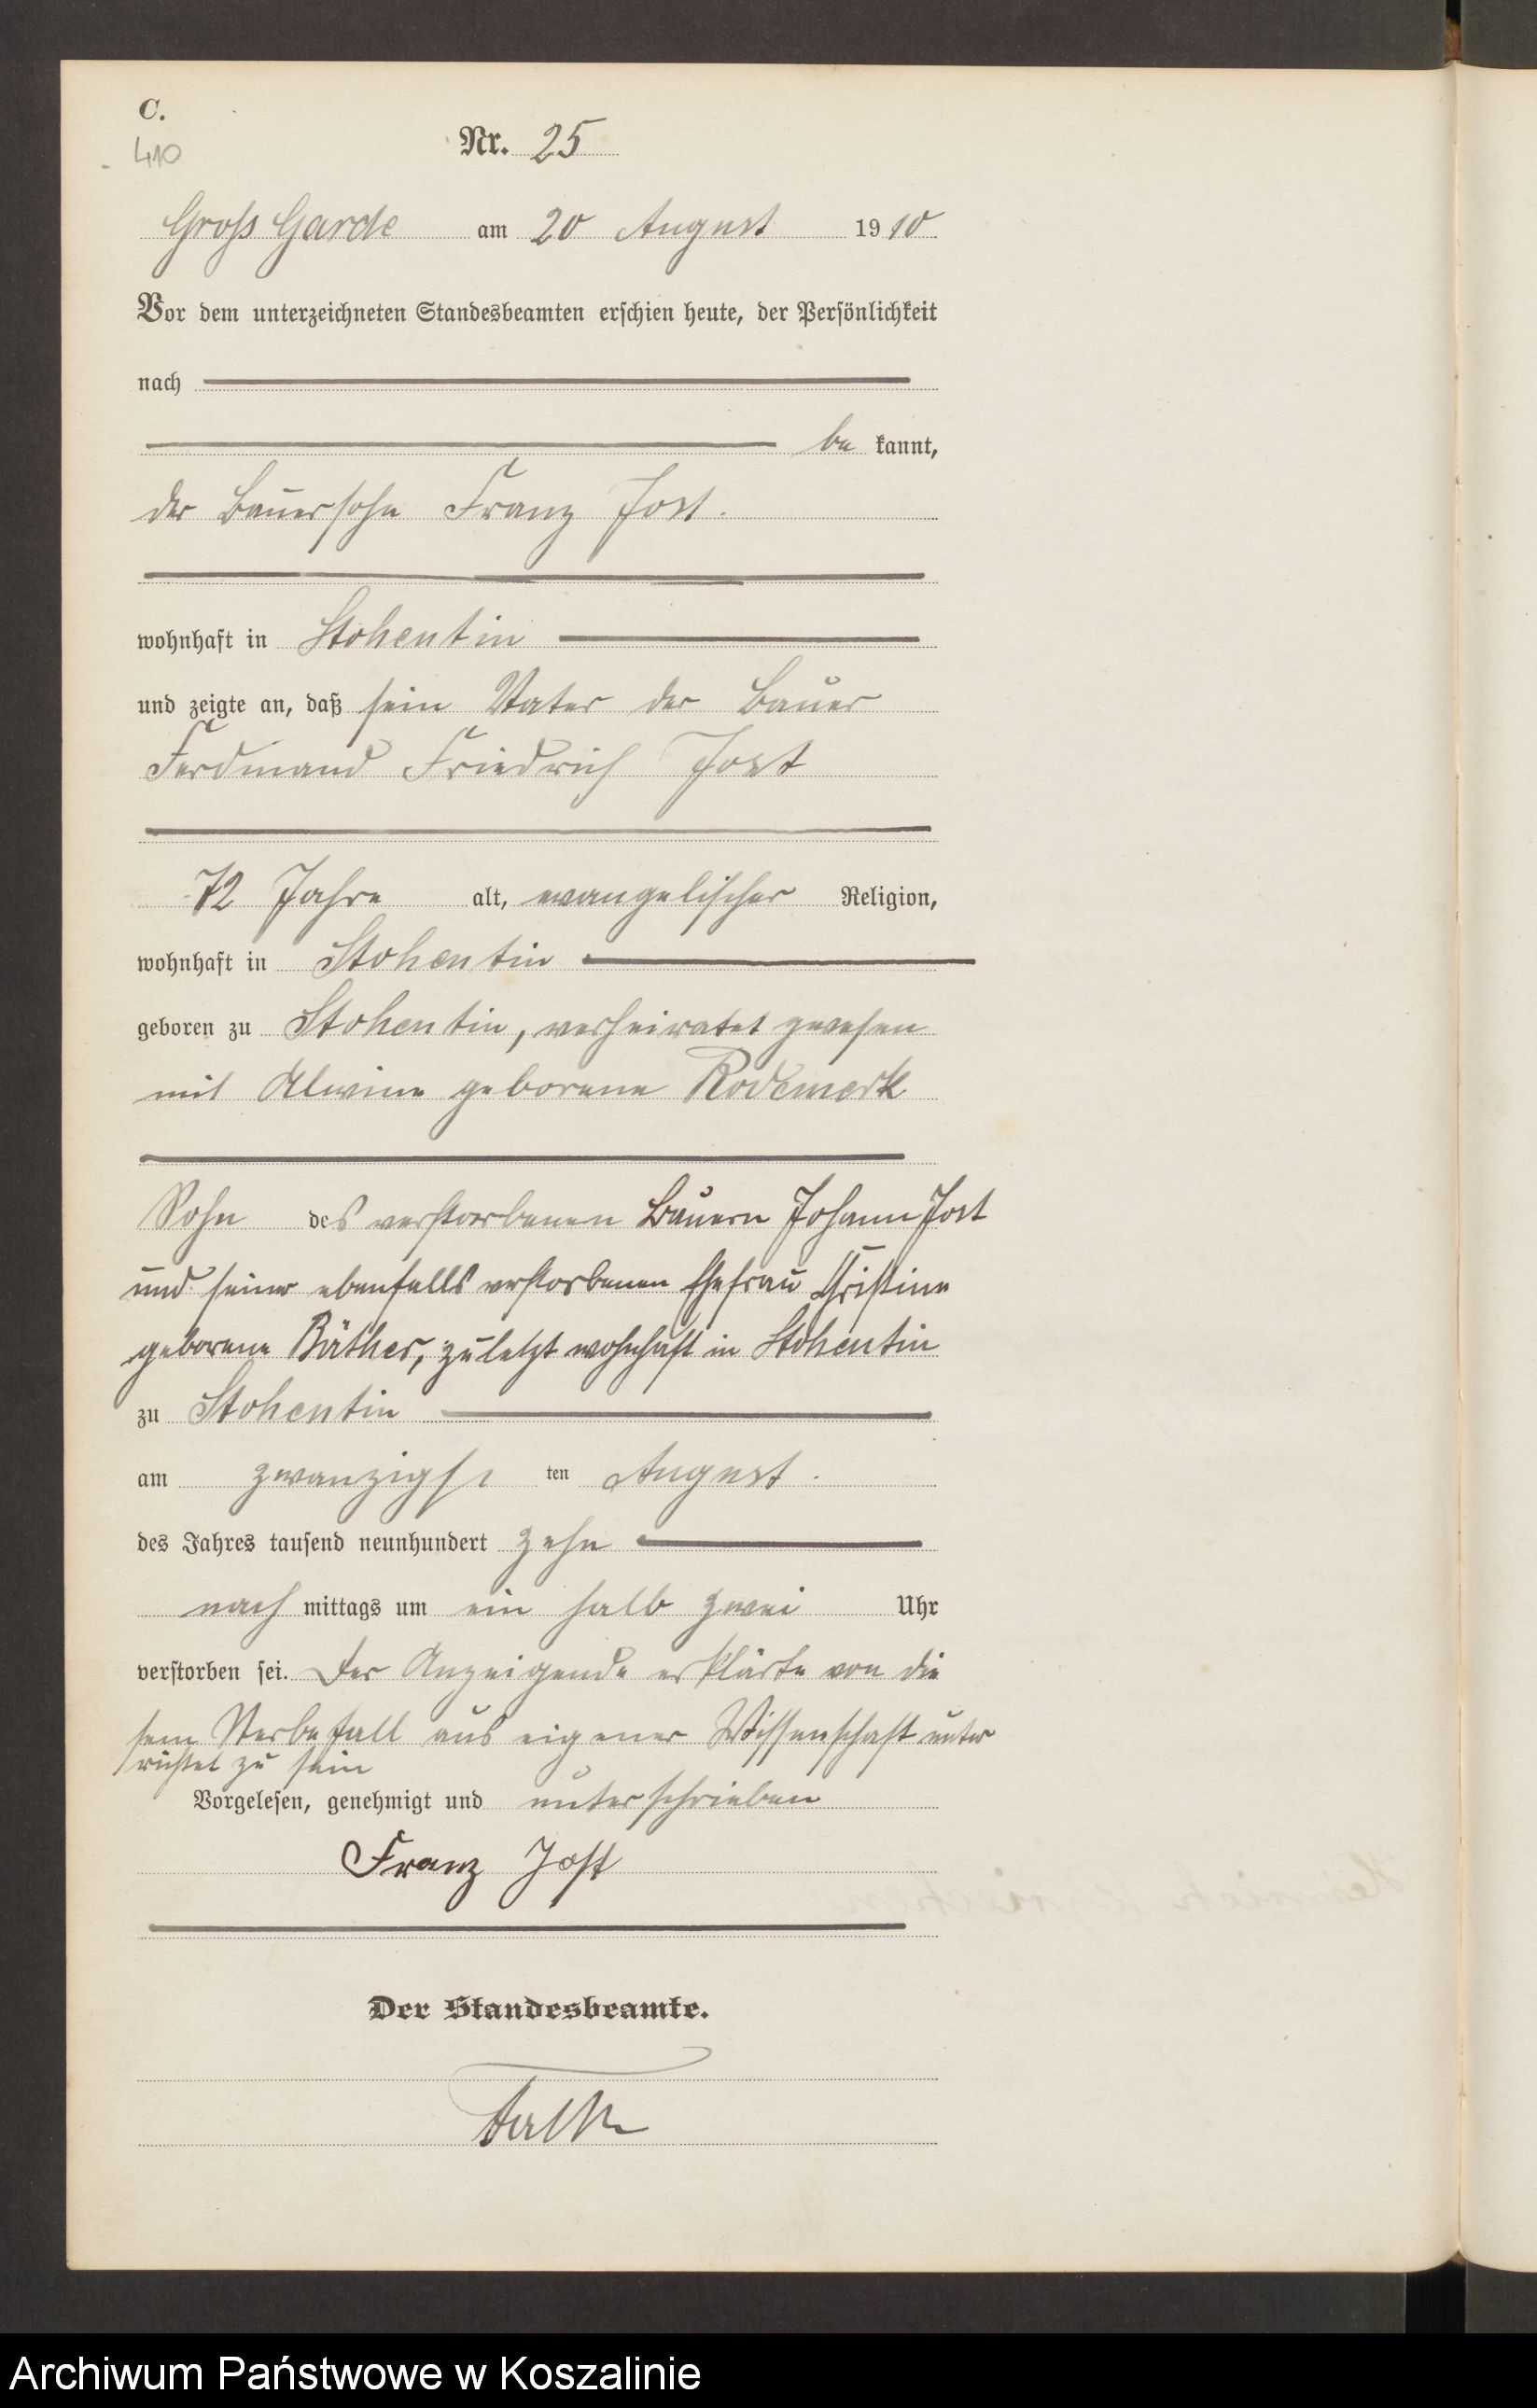 C.
410
Nr. 25
Groß Garde am 20 August 1910
Vor dem unterzeichneten Standesbeamten erschien heute, der Persönlichkeit
nach
be kannt,
der Bauersohn Franz Jost.
wohnhaft in Stohentin
und zeigte an, daß sein Vater der Bauer
Ferdinand Friedrich Jost
72 Jahre alt, evangelischer Religion,
wohnhaft in Stohentin
geboren zu Stohentin, verheiratet gewesen
mit Alwine geborene Rodemerk
Sohn des verstorbenen Bauern Johann Jost
und seiner ebenfalls verstorbenen Ehefrau Christine
geborene Räther, zuletzt wohnhaft in Stohentin
zu Stohentin
am zwanzigsten August.
des Jahres tausend neunhundert zehn
nach mittags um ein halb zwei Uhr
verstorben sei. Der Anzeigende erklärte von die
sem Sterbefall aus eigener Wissenschaft unter
richtet zu sein
Vorgelesen, genehmigt und unterschrieben
Franz Jost
Der Standesbeamte.
Archiwum Państwowe w Koszalinie